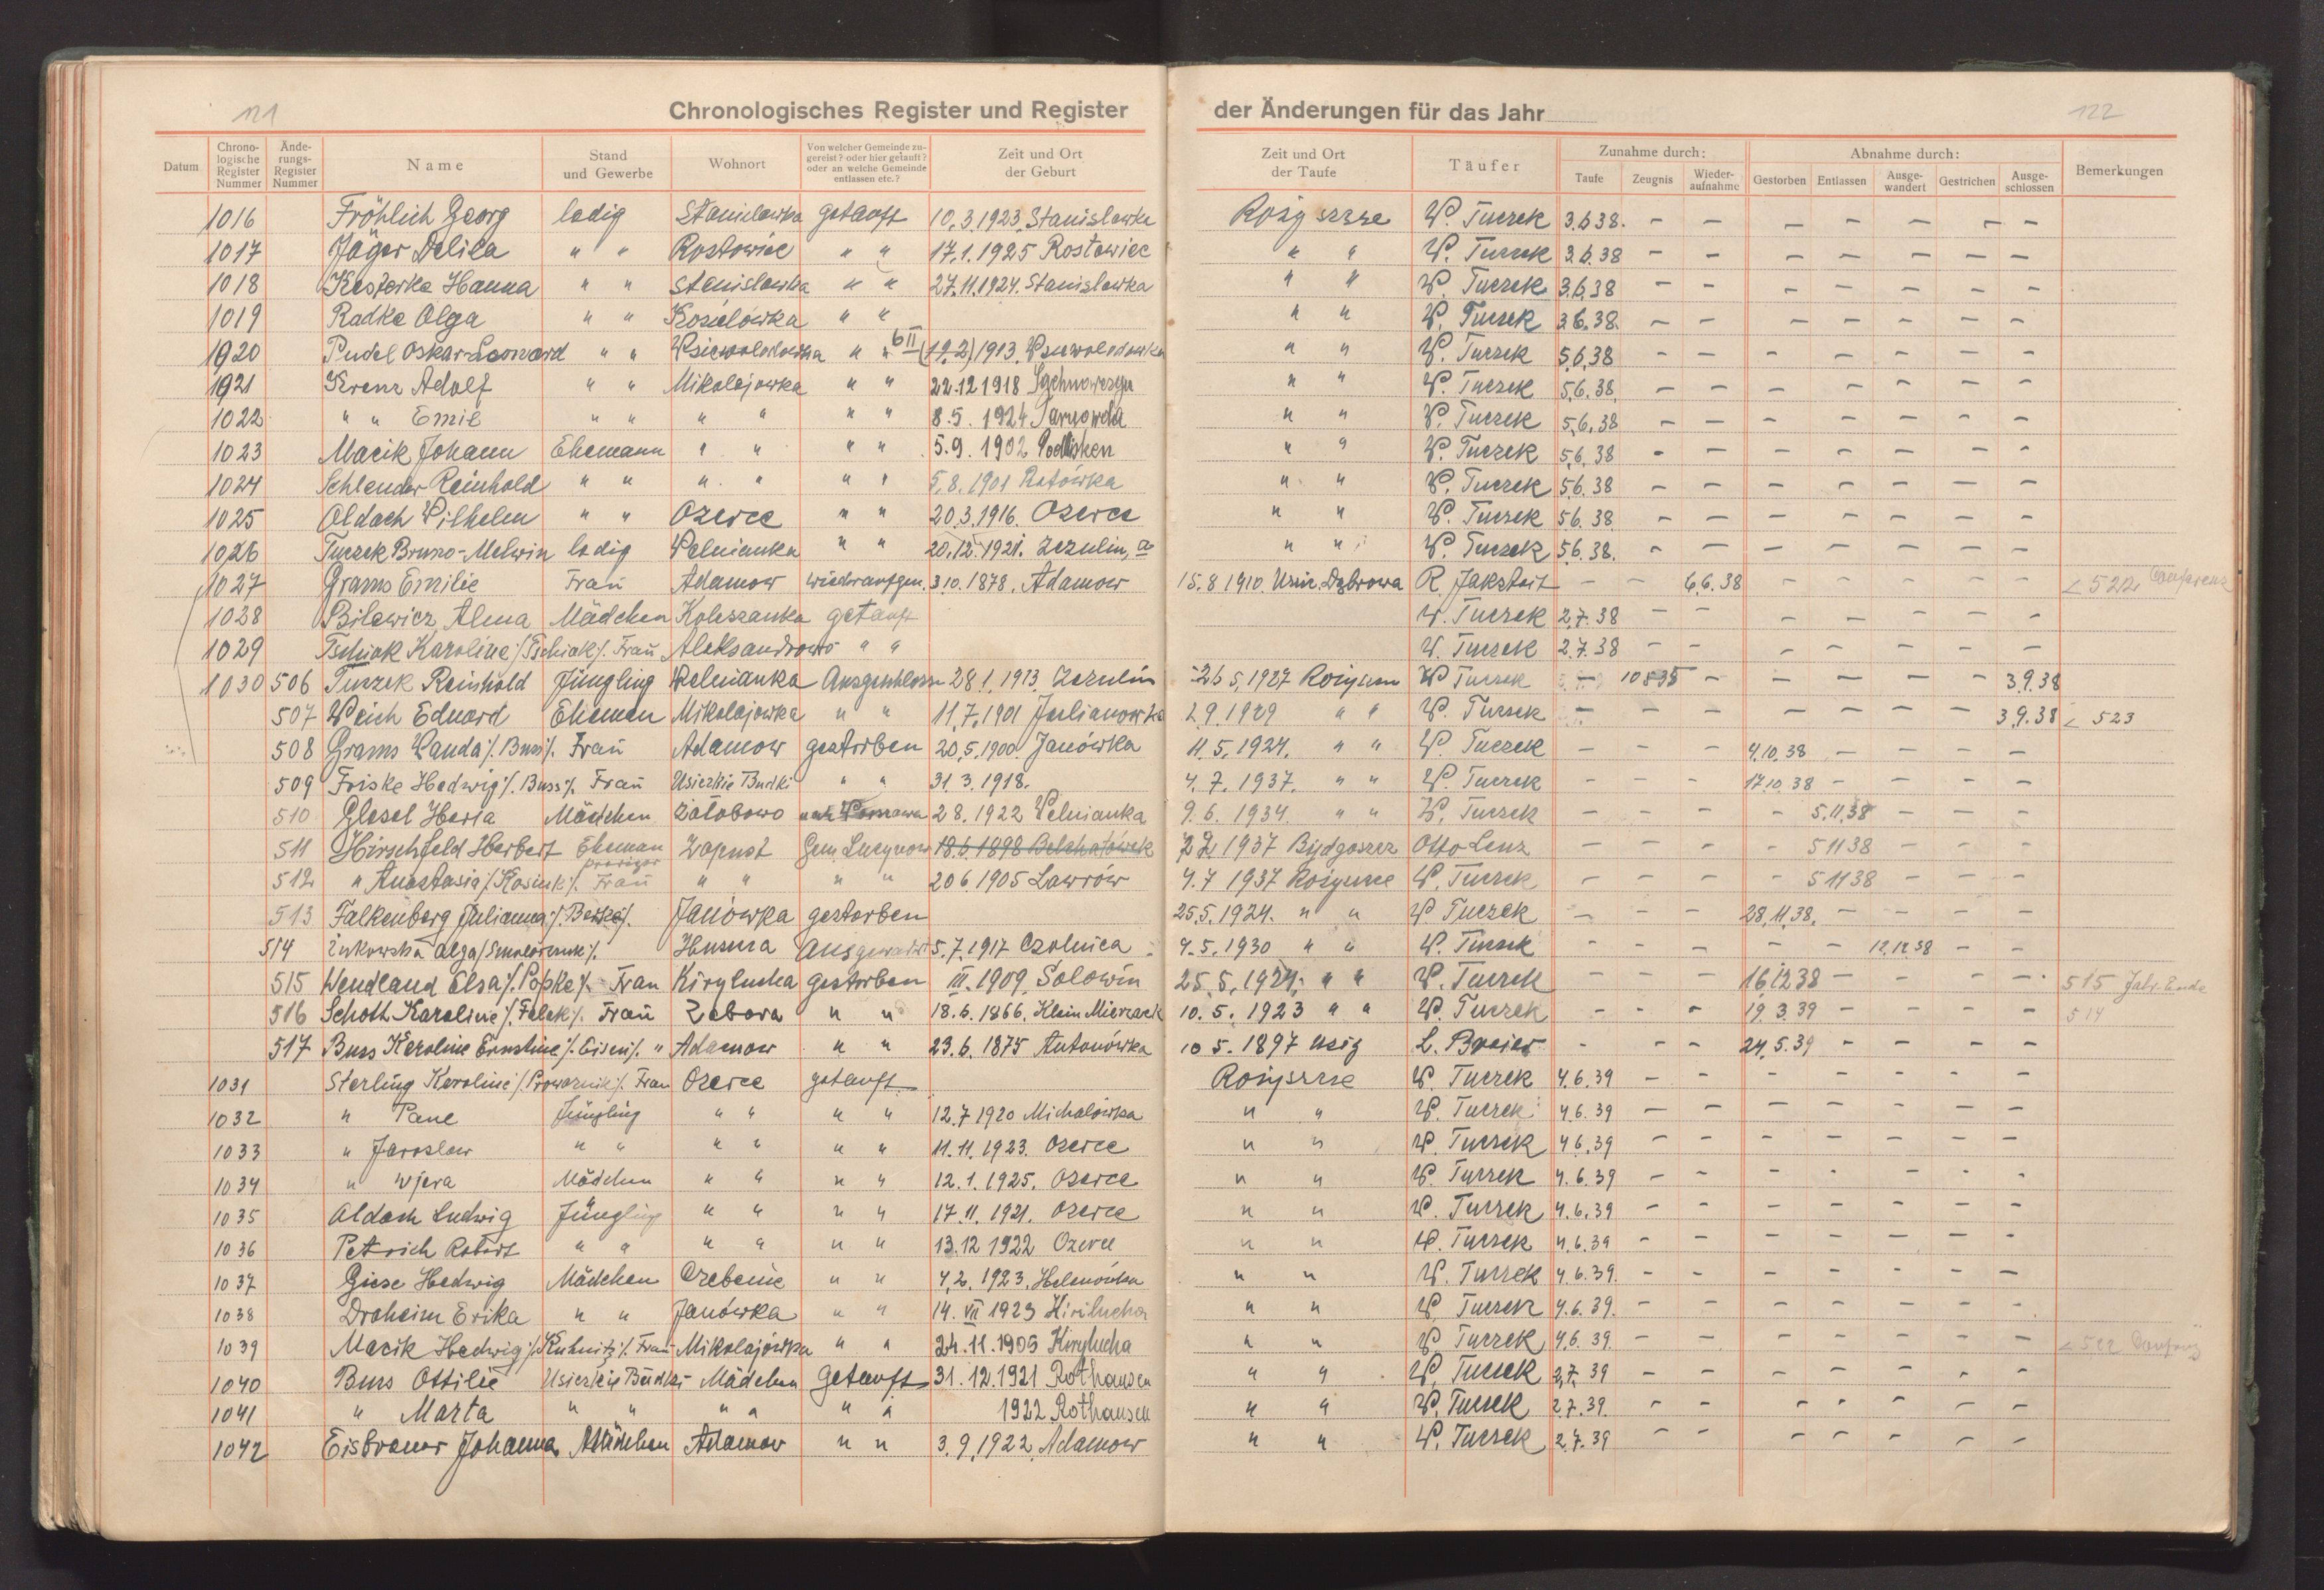 121
Chronologisches Register und Register der Änderungen für das Jahr
122
Datum Chrono-logische Register Nummer Ände-rungs-Register Nummer Name Stand und Gewerbe Wohnort Von welcher Gemeinde zu-gereist? oder hier getauft? oder an welche Gemeinde entlassen etc.? Zeit und Ort der Geburt Zeit und Ort der Taufe Täufer Zunahme durch: Taufe Zeugnis Wieder-aufnahme Abnahme durch: Gestorben Entlassen Ausge-wandert Gestrichen Ausge-schlossen Bemerkungen
1016 Fröhlich Georg ledig Stanislawka getauft 10.3.1923. Stanislawka Rożyszcze W. Tuczek 3.6.38. - - - - - - -
1017 Jäger Delila " " Rostowiec " " 17.1.1925 Rostowiec " " W. Tuczek 3.6.38 - - - - - - -
1018 Kesterke Hanna " " Stanislawka " " 27.11.1924. Stanislawka " " W. Tuczek 3.6.38 - - - - - - -
1019 Radke Olga " " Kozielówka " " " " W. Tuczek 3.6.38. - - - - - - -
1020 Pudel Oskar-Leonard " " Wsiewolodowka " " 6 II (19.2) 1913. Wsiewolodowka " " W. Tuczek 5.6.38 - - - - - - -
1021 Krenz Adolf " " Mikolajowka " " 22.12.1918 " " W. Tuczek 5.6.38. - - - - - - -
1022 " " Emil " " " " " " 8.5.1924 Tarnowola " " W. Tuczek 5.6.38 - - - - - - -
1023 Macik Johann Ehemann " " " " 5.9.1902 Podlisken " " W. Tuczek 5.6.38 - - - - - - -
1024 Schlender Reinhold " " " " " " 5.8.1901 Ratówka " " W. Tuczek 5.6.38 - - - - - - -
1025 Aldach Wilhelm " " Ozerce " " 20.3.1916. Ozerce " " W. Tuczek 5.6.38 - - - - - - -
1026 Tuczek Bruno-Melwin ledig Welnianka " " 20.12.1921. Zezulin, " " W. Tuczek 5.6.38. - - - - - - -
1027 Grams Emilie Frau Adamow wiederaufgen. 3.10.1878. Adamow 15.8.1910. Dąbrowa R. Jaksteit - - 6.6.38 - - - - - < 522 Conferenz
1028 Bilewicz Alma Mädchen Koleszanka getauft W. Tuczek 2.7.38 - - - - - - -
1029 Tschiak Karoline /Tschiak/. Frau Aleksandrowo " " W. Tuczek 2.7.38 - - - - - - -
1030 506 Tuczek Reinhold Jüngling Welnianka Ausgeschlossen 28.1.1913. Zezulin 26.5.1927 Rożyszcze W. Tuczek - 10 8 38 - - - - - 3.9.38
507 Weich Eduard Eheman Mikolajowka " " 11.7.1901 Julianowka 2.9.1929 " " W. Tuczek - - - - - - - 3.9.38 < 523
508 Grams Wanda /. Buss /. Frau Adamow gestorben 20.5.1900. Janówka 11.5.1924. " " W. Tuczek - - - 4.10.38 - - - -
509 Friske Hedwig /. Buss /. Frau Usiczkie Budki " " 31.3.1918. 4.7.1937. " " W. Tuczek - - - 17.10.38 - - - -
510 Glesel Herta Mädchen Zalobowo nach 2 8.1922 Welnianka 9.6.1934. " " W. Tuczek - - - - 5.11.38 - - -
511 Hirschfeld Herbert Eheman Prediger Zapust Gem. Lucynow 18.6.1898 Belchatówek 1937 Bydgoszcz Otto Lenz - - - - 5 11 38 - - -
512 " Anastasia /. Kosiuk /. Frau " " " " 20 6.1905 Lawrów 4.7 1937 Rożyszcze W. Tuczek - - - - 5 11 38 - - -
513 Falkenberg Julianna /. Janówka gestorben 25.5.1924. " " W. Tuczek - - - 28.11.38. - - - -
514 Żukowska Olga /Smolarczuk/. Husina Ausgewandert 5.7.1917 Czolnica 4.5.1930 " " W. Tuczek - - - - - 12.12 38 - -
515 Wendland Elsa /. Popke /. Frau Kirylucha gestorben III.1909. Solowin 25.5.1924. " " W. Tuczek - - - 16 12 38 - - - - 515 Jahr-Ende
516 Schott Karoline /. Falek /. Frau Zabora " " 18.6.1866. Klein 10.5.1923 " " W. Tuczek - - - 19.3.39 - - - - 514
517 Buss Karoline Ernstine /. Eisen /. " Adamow " " 23.6.1875 Antonówka 10 5.1897 Usiz L. Breier - - - 24.5.39 - - - -
1031 Sterling Karoline /. Prowoznik /. Frau Ozerce getauft Rożyszcze W. Tuczek 4.6.39 - - - - - - -
1032 " Paul Jüngling " " " " 12.7.1920 Michalówka " " W. Tuczek 4.6.39 - - - - - - -
1033 " Jaroslaw " " " " " " 11.11.1923. Ozerce " " W. Tuczek 4 6.39 - - - - - - -
1034 " Wjera Mädchen " " " " 12.1.1925. Ozerce " " W. Tuczek 4.6.39 - - - - - - -
1035 Aldach Ludwig Jüngling " " " " 17.11.1921. Ozerce " " W. Tuczek 4.6.39 - - - - - - -
1036 Petrich Robert " " " " " " 13.12 1922 Ozerce " " W. Tuczek 4.6.39 - - - - - - -
1037 Giese Hedwig Mädchen Czebenie " " 4.2.1923. Helenówka " " W. Tuczek 4.6.39. - - - - - - -
1038 Draheim Erika " " Janówka " " 14. VII 1923 Kirilucha " " W. Tuczek 4.6.39. - - - - - - -
1039 Macik Hedwig /. Kuhnitz /. Frau Mikolajówka " " 24.11.1905 Kirylucha " " W. Tuczek 4.6.39. - - - - - - - < 522
1040 Buss Ottilie Usiczkie Budki - Mädchen Getauft 31.12.1921 Rothausen " " W. Tuczek 2.7.39 - - - - - - -
1041 " Marta " " " " " " 1922 Rothausen " " W. Tuczek 2.7.39. - - - - - - -
1042 Eisbrener Johanna Mädchen Adamow " " 3.9.1922. Adamow " " W. Tuczek 2.7.39 - - - - - - -